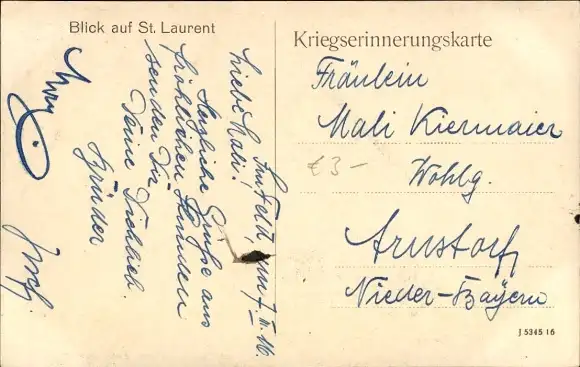 Blick auf St. Laurent
Kriegserinnerungskarte
Fräulein
Mali Kiermaier
Wohlg.
Arnstorf
Nieder-Bayern
£3-
Im Felde, am 7. II. 16.
Liebe Mali!
Herzliche Grüße aus
fröhlichen Stunden
senden Dir
Deine Dichlieb
Brüder
Josef
J 5345 16